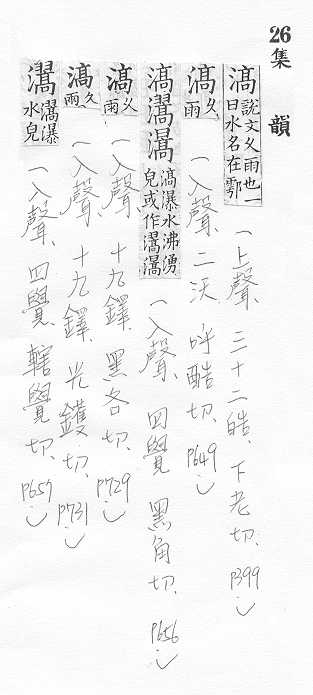 26集 韻
滈說文久雨也一曰水名在鄠 一上聲、三十二皓、下老切、P399
滈久雨 一入聲 二沃 呼酷切、P649
滈灂灂滈瀑水沸湧皃或作灂灂 一入聲、四覺 黑角切、P656
滈久雨 一入聲、十九鐸、黑各切、P729
滈久雨 一入聲、十九鐸、光鑊切、P731
灂灂瀑水皃 一入聲、四覺、轄覺切、P657